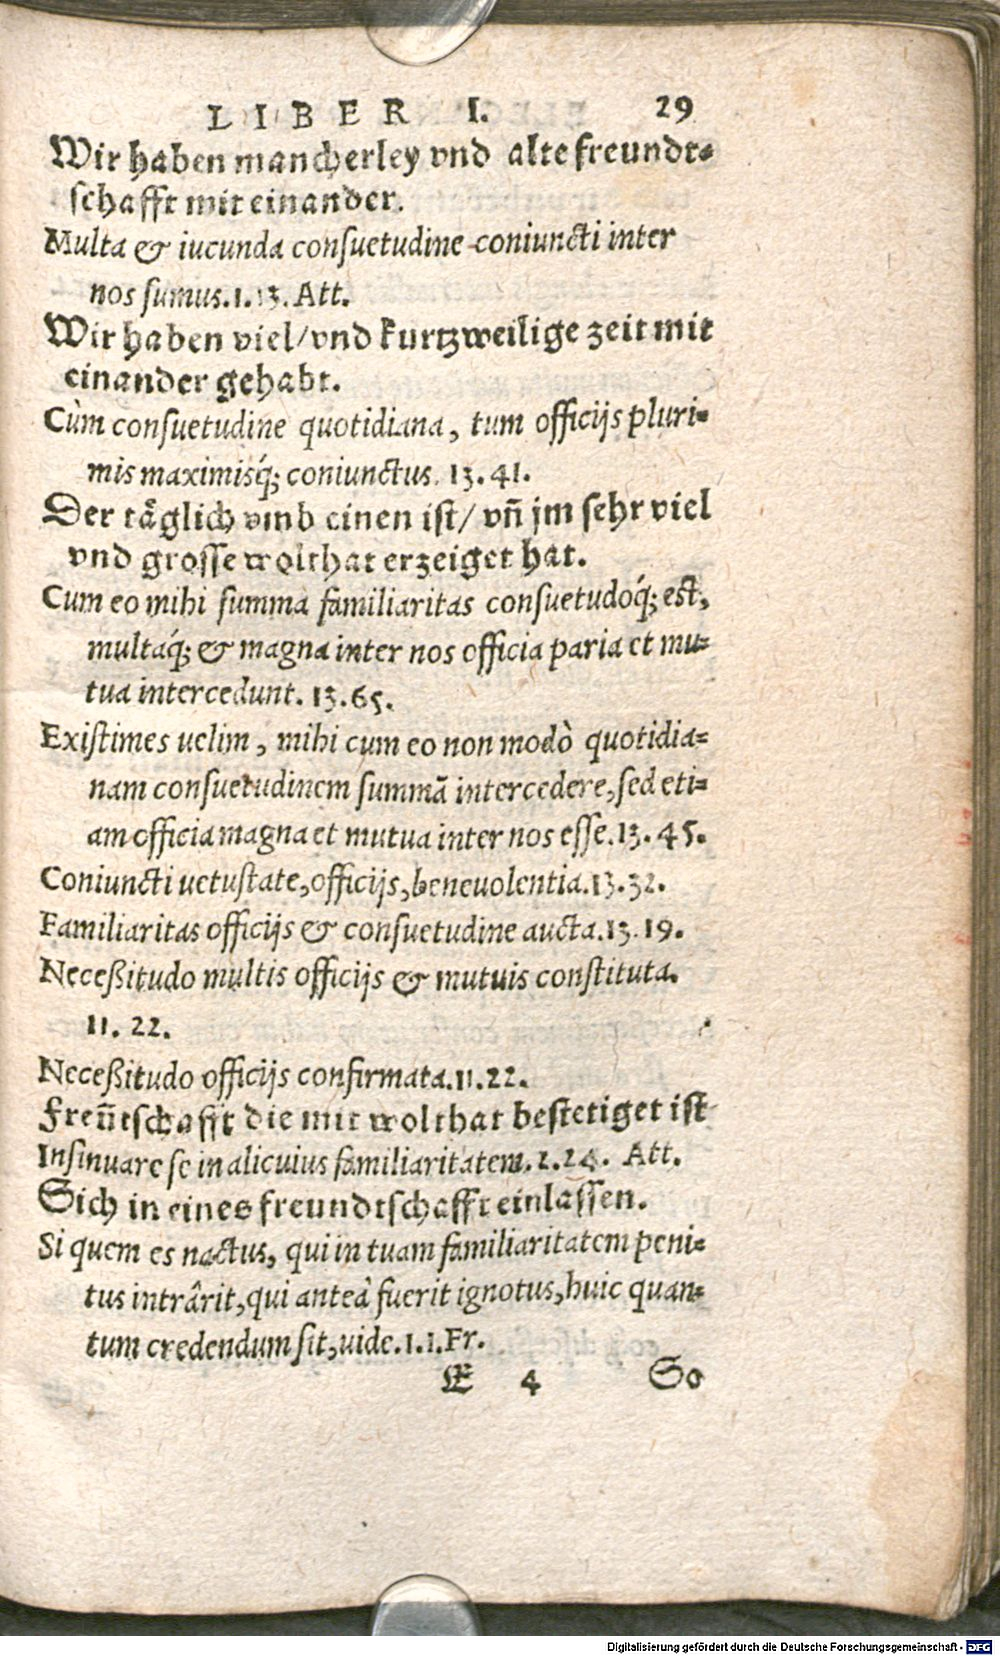 LIBER I. 29
Wir haben mancherley vnd alte freundt-
schafft mit einander.
Multa & iucunda consuetudine coniuncti inter
nos sumus. 1. 13. Att.
Wir haben viel/vnd kurtzweilige zeit mit
einander gehabt.
Cùm consuetudine quotidiana, tum officijs pluri-
mis maximisq́; coniunctus. 13. 41.
Der täglich vmb einen ist/ vñ jm sehr viel
vnd grosse wolthat erzeiget hat.
Cum eo mihi summa familiaritas consuetudoq́; est,
multaq́; & magna inter nos officia paria et mu-
tua intercedunt. 13. 65.
Existimes uelim, mihi cum eo non modò quotidia-
nam consuetudinem summã intercedere, sed eti-
am officia magna et mutua inter nos esse. 13. 45.
Coniuncti uetustate, officijs, beneuolentia. 13. 32.
Familiaritas officijs & consuetudine aucta. 13. 19.
Neceßitudo multis officijs & mutuis constituta.
11. 22.
Neceßitudo officijs confirmata. 11. 22.
Freũtschafft die mit wolthat bestetiget ist
Insinuare se in alicuius familiaritatem. 2. 24. Att.
Sich in eines freundtschafft einlassen.
Si quem es nactus, qui in tuam familiaritatem peni-
tus intrârit, qui anteà fuerit ignotus, huic quan-
tum credendum sit, uide. 1. 1. Fr.
E 4 So
Digitalisierung gefördert durch die Deutsche Forschungsgemeinschaft - DFG